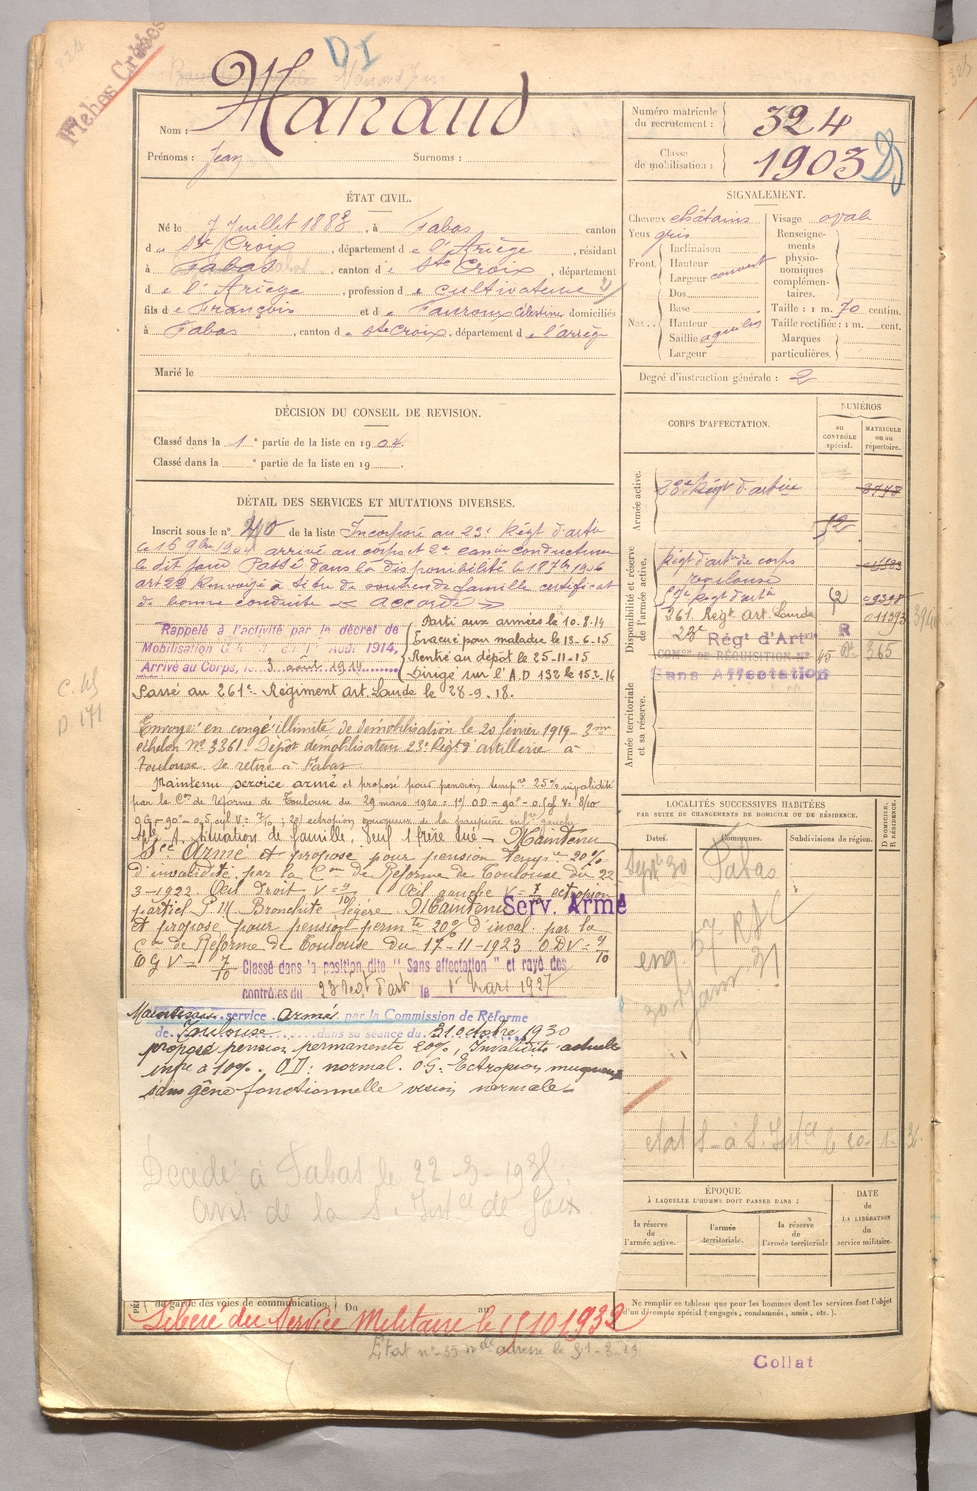 Fiches Croisés
D I
Manaud
Nom :
Prénoms : Jean Surnoms :
Numéro matricule du recrutement : 324
Classe de mobilisation : 1903
ÉTAT CIVIL.
Né le 7 Juillet 1883, à Fabas canton
d e Ste Croix, département d e l'Ariège, résidant
à Fabas, canton d e Ste Croix, département
d e l'Ariège, profession d e cultivateur
fils d e François et d e Faurous Célestine domiciliés
à Fabas, canton d e Ste Croix, département d e l'ariège
Marié le
SIGNALEMENT.
Cheveux châtains Visage ovale
Yeux gris
Front. Inclinaison
Hauteur
Largeur couvert
Nez Dos
Base
Hauteur
Saillie aquilin
Largeur
Renseignements physionomiques complémentaires.
Taille : 1 m. 70 centim.
Taille rectifiée : 1 m. cent.
Marques particulières.
Degré d'instruction générale : 2
DÉCISION DU CONSEIL DE REVISION.
Classé dans la 1e partie de la liste en 1904.
Classé dans la e partie de la liste en 19 .
DÉTAIL DES SERVICES ET MUTATIONS DIVERSES.
Inscrit sous le n° 40 de la liste Incorporé au 23e Régt d'artie
le 16 9bre 1904 arrivé au corps et 2e canonnier conducteur
le dit jour Passé dans la disponibilité le 18 7bre 1906
art 22 Renvoyé à titre de soutien de famille certificat
de bonne conduite « accordé »
Rappelé à l'activité par le décret de
Mobilisation Générale du 1er Août 1914,
Arrivé au Corps, le 3 août 1914
Parti aux armées le 10.8.14
Evacué pour maladie le 13-6-15
Rentré au dépôt le 25-11-15
Dirigé sur l'A.D 132 le 15-2-16
Passé au 261e Régiment Art. Lourde le 28-9-18.
Envoyé en congé illimité de démobilisation le 20 février 1919 3me
échelon N° 3361. Dépôt démobilisateur 23e Régt d'artillerie à
Toulouse. se retire à Fabas
Maintenu service armé et proposé pour pension tempre 25% invalidité
par la Con de réforme de Toulouse du 29 mars 1920
situation de famille, Seul 1 frère tué – Maintenu
Sce Armé et proposé pour pension tempre 20%
d'invalidité, par la Con de Réforme de Toulouse du 22
3-1922. Œil Droit V = 9/10 Œil gauche V = 7/10 ectropion
partiel P.M. Bronchite légère. Maintenu Serv. Armé
et proposé pour pension permte 20% d'inval. par la
Con de Réforme de Toulouse du 17-11-1923 ODV = 9/10
OGV = 7/10 Classé dans la position dite "Sans affectation" et rayé des
contrôles du 23e Régt d'art le 1er Mars 1927
Maintenu service Armé par la Commission de Réforme
de Toulouse dans sa séance du 31 octobre 1930
proposé pension permanente 20%, Invalidité actuelle
infre à 10%. O D : normal. O G : Ectropion muqueux
sans gêne fonctionnelle vision normale.
Décédé à Fabas le 22-3-1935.
avis de la S. Intce de Foix.
de garde des voies de communication Du au
Libéré du Service Militaire le 15 10 1932
CORPS D'AFFECTATION.
NUMÉROS
au CONTRÔLE spécial.
MATRICULE ou au répertoire.
Armée active.
23e Régt d'artrie
Disponibilité et réserve de l'armée active.
Régt d'artrie de corps
Toulouse
261 Régt Art. Lourde 011393
23e Régt d'Artie R
COMon DE RÉQUISITION N° 45 365
Sans Affectation
Armée territoriale et sa réserve.
LOCALITÉS SUCCESSIVES HABITÉES
PAR SUITE DE CHANGEMENTS DE DOMICILE OU DE RÉSIDENCE.
Dates. Communes. Subdivisions de région. D DOMICILE, R RÉSIDENCE.
Sept 30 Fabas
ÉPOQUE
À LAQUELLE L'HOMME DOIT PASSER DANS :
la réserve de l'armée active.
l'armée territoriale.
la réserve de l'armée territoriale
DATE de LA LIBÉRATION du service militaire.
Ne remplir ce tableau que pour les hommes dont les services font l'objet
d'un décompte spécial (engagés, condamnés, omis, etc.).
Collat